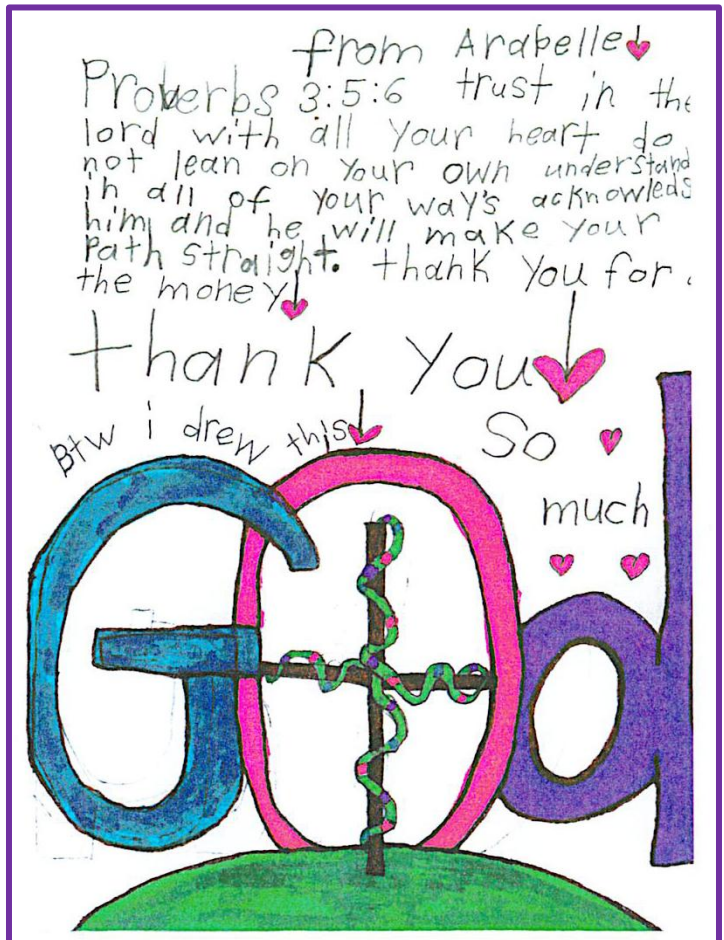 from Arabelle
Proverbs 3:5:6 trust in the
lord with all your heart do
not lean on your own understand
in all of your way's acknowledg
him and he will make your
Path straight. thank you for
the money
thank you
Btw i drew this
So
much
God